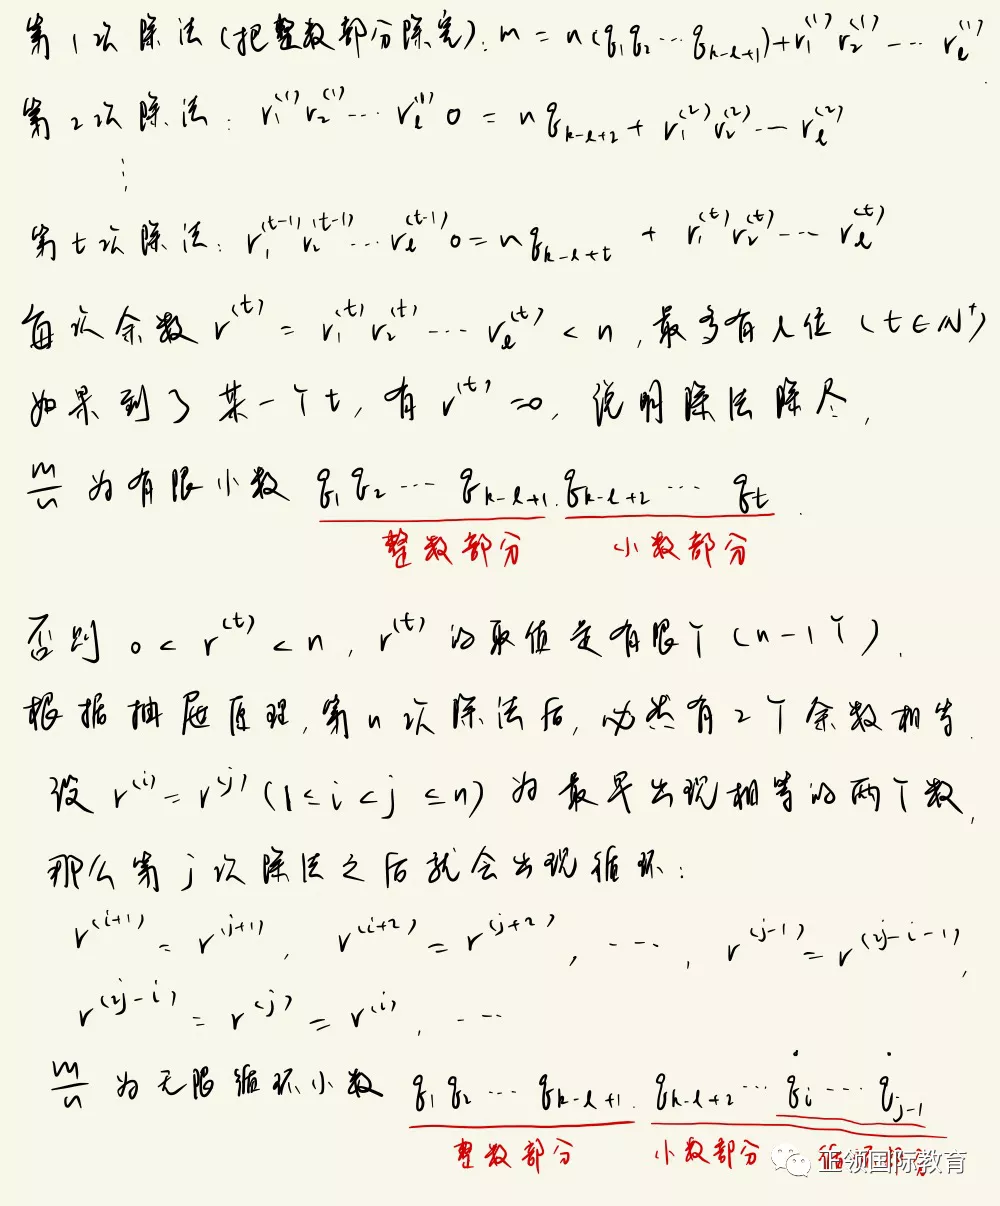 第1次除法(把整数部分除完): m = n(q₁q₂⋯q_{k-l+1}) + r₁⁽¹⁾r₂⁽¹⁾⋯r_l⁽¹⁾
第2次除法: r₁⁽¹⁾r₂⁽¹⁾⋯r_l⁽¹⁾0 = nq_{k-l+2} + r₁⁽²⁾r₂⁽²⁾⋯r_l⁽²⁾
⋮
第t次除法: r₁⁽ᵗ⁻¹⁾r₂⁽ᵗ⁻¹⁾⋯r_l⁽ᵗ⁻¹⁾0 = nq_{k-l+t} + r₁⁽ᵗ⁾r₂⁽ᵗ⁾⋯r_l⁽ᵗ⁾
每次余数 r⁽ᵗ⁾ = r₁⁽ᵗ⁾r₂⁽ᵗ⁾⋯r_l⁽ᵗ⁾ < n, 最多有l位 (t∈ℕ⁺)
如果到了某一个t, 有 r⁽ᵗ⁾=0, 说明除法除尽,
m/n 为有限小数 q₁q₂⋯q_{k-l+1}.q_{k-l+2}⋯q_t.
整数部分 小数部分
否则 0 < r⁽ᵗ⁾ < n, r⁽ᵗ⁾ 的取值是有限个 (n-1个).
根据抽屉原理, 第n次除法后, 必然有2个余数相等.
设 r⁽ⁱ⁾ = r⁽ʲ⁾ (1≤i<j≤n) 为最早出现相等的两个数,
那么第j次除法之后就会出现循环:
r⁽ⁱ⁺¹⁾ = r⁽ʲ⁺¹⁾, r⁽ⁱ⁺²⁾ = r⁽ʲ⁺²⁾, ⋯, r⁽ʲ⁻¹⁾ = r⁽²ʲ⁻ⁱ⁻¹⁾,
r⁽²ʲ⁻ⁱ⁾ = r⁽ʲ⁾ = r⁽ⁱ⁾, ⋯
m/n 为无限循环小数 q₁q₂⋯q_{k-l+1}.q_{k-l+2}⋯q̇_i⋯q̇_{j-1}
整数部分 小数部分 循环部分
正领国际教育